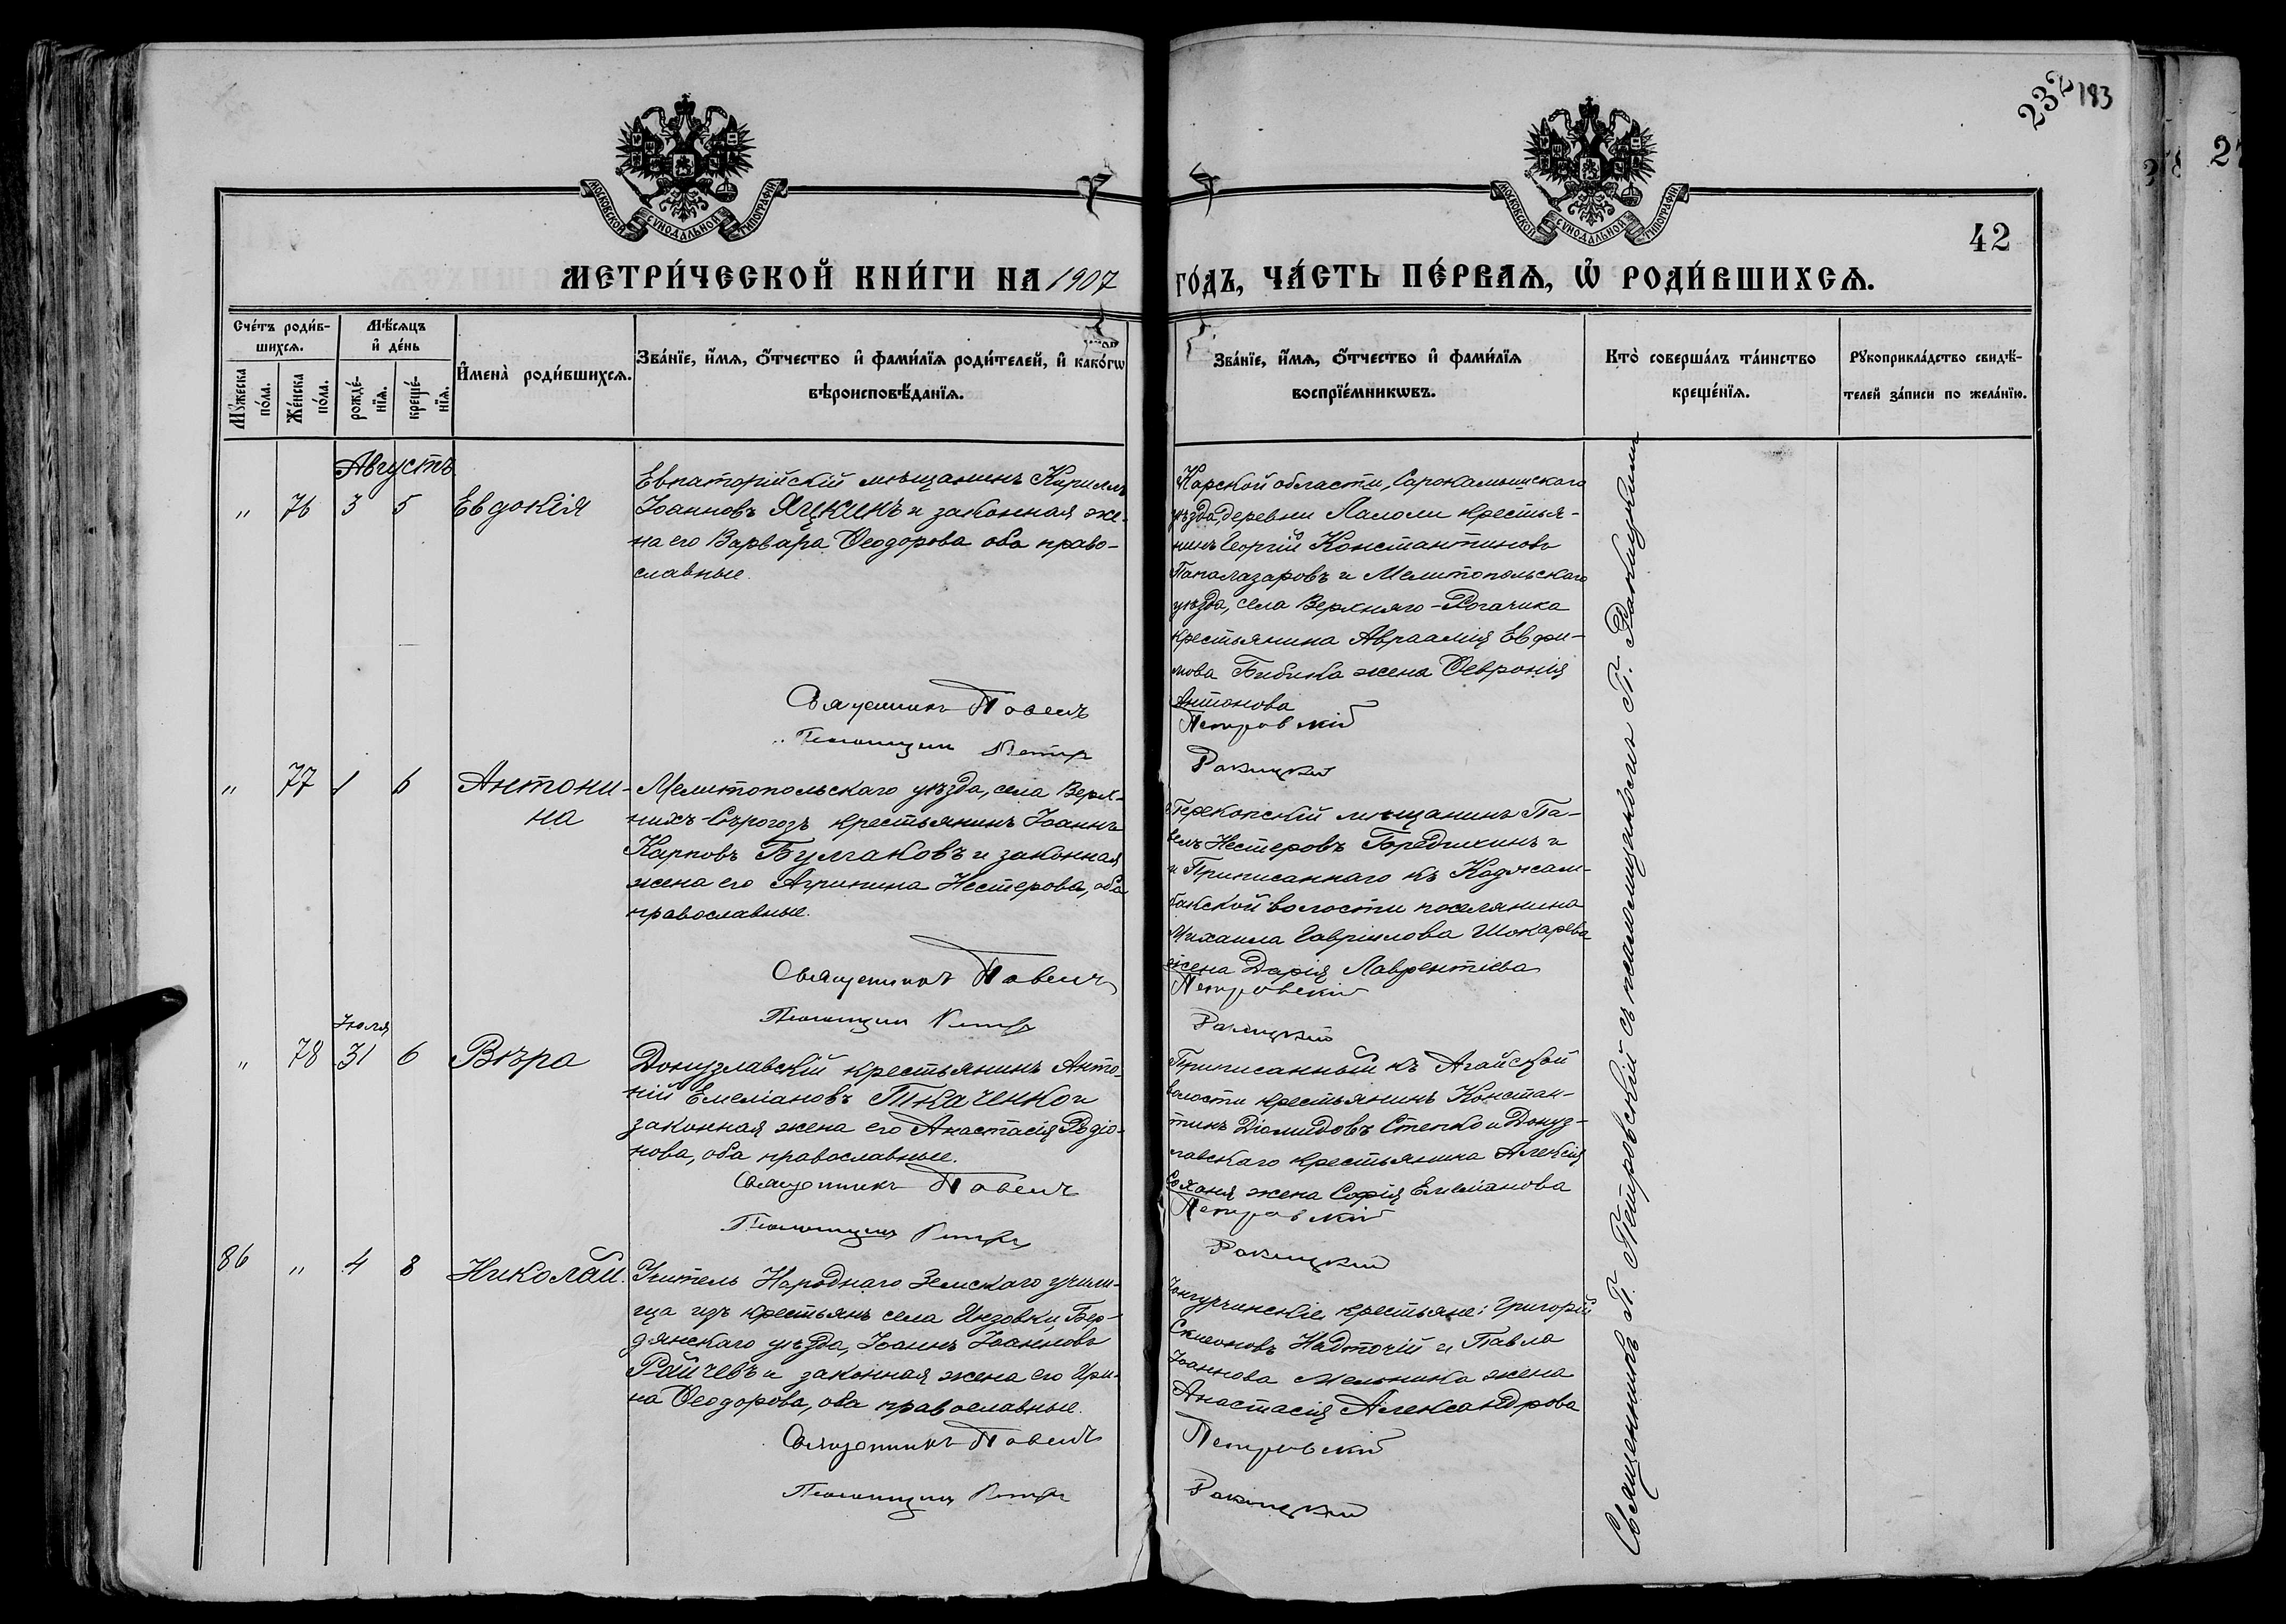 232
183
42
МОСКОВСКОЙ СѴНОДАЛЬНОЙ ТИПОГРАФІИ
МОСКОВСКОЙ СѴНОДАЛЬНОЙ ТИПОГРАФІИ
МЕТРИ́ЧЕСКОЙ КНИ́ГИ НА 1907
ГО́ДЪ, ЧА́СТЬ ПЕ́РВАѦ, Ѡ҆ РОДИ́ВШИХСѦ.
Сче́тъ роди́в-
шихсѧ.
Мѣ́сѧцъ
и҆ де́нь
Мꙋ́жеска
по́ла.
Же́нска
по́ла.
рожде́-
нїѧ.
креще́-
нїѧ.
И҆мена̀ роди́вшихсѧ.
Зва́нїе, и҆́мѧ, ѻ҆́тчество и҆ фами́лїѧ роди́телей, и҆ како́гѡ
вѣроисповѣ́данїѧ.
Зва́нїе, и҆́мѧ, ѻ҆́тчество и҆ фами́лїѧ
воспрїе́мникѡвъ.
Кто̀ соверша́лъ та́инство
креще́нїѧ.
Рꙋкоприкла́дство свидѣ́-
телей за́писи по жела́нїю.
Августъ
" 76 3 5 Евдокія
Евпаторійскій мѣщанинъ Кириллъ
Іоанновъ Яцкинъ и законная же-
на его Варвара Ѳеодорова оба право-
славные.
Священникъ Павелъ
Псаломщикъ Петръ
Карской области, Сарокамышскаго
уѣзда, деревни Лалоли крестья-
нинъ Георгій Константиновъ
Папалазаровъ и Мелитопольскаго
уѣзда, села Верхняго-Рогачика
крестьянина Авраамія Евфи-
мова Бибика жена Ѳевронія
Антонова
Петровскій
Ракицкій
" 77 1 6 Антони-
на
Мелитопольскаго уѣзда, села Верх-
нихъ-Сѣрогозъ крестьянинъ Іоаннъ
Карповъ Булгаковъ и законная
жена его Агрипина Нестерова, оба
православные.
Священникъ Павелъ
Псаломщикъ Петръ
Перекопскій мѣщанинъ Па-
велъ Нестеровъ Бредихинъ и
и Приписаннаго къ Коджам-
бакской волости поселянина
Михаила Гавріилова Шокарева
жена Дарія Лаврентіева
Петровскій
Ракицкій
Іюля
" 78 31 6 Вѣра
Донузлавскій крестьянинъ Анто-
ній Емеліановъ Ткаченко и
законная жена его Анастасія Родіо-
нова, оба православные.
Священникъ Павелъ
Псаломщикъ Петръ
Приписанный къ Агайской
волости крестьянинъ Констан-
тинъ Діомидовъ Степко и Донуз-
лавскаго крестьянина Алексія
жена Софія Емеліанова
Петровскій
Ракицкій
86 " 4 8 Николай.
Учитель Народнаго Земскаго учили-
ща изъ крестьянъ села Инзовки, Бер-
дянскаго уѣзда, Іоаннъ Іоанновъ
Райчевъ и законная жена его Ири-
на Ѳеодорова, оба православные.
Священникъ Павелъ
Псаломщикъ Петръ
крестьяне: Григорій
Симеоновъ Надточій и Павла
Іоаннова Мельника жена
Анастасія Александрова
Петровскій
Ракицкій
Священникъ П. Петровскій съ псаломщикомъ П. Ракицкимъ